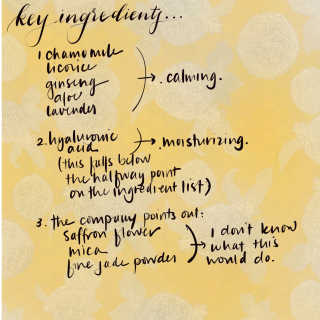 key ingredients...
1. chamomile
licorice
ginseng
aloe
lavender
→ . calming.
2. hyaluronic
acid
→ . moisturizing.
(this falls below
the halfway point
on the ingredient list)
3. the company points out:
saffron flower
mica
fine jade powder
→ I don't know
what this
would do.